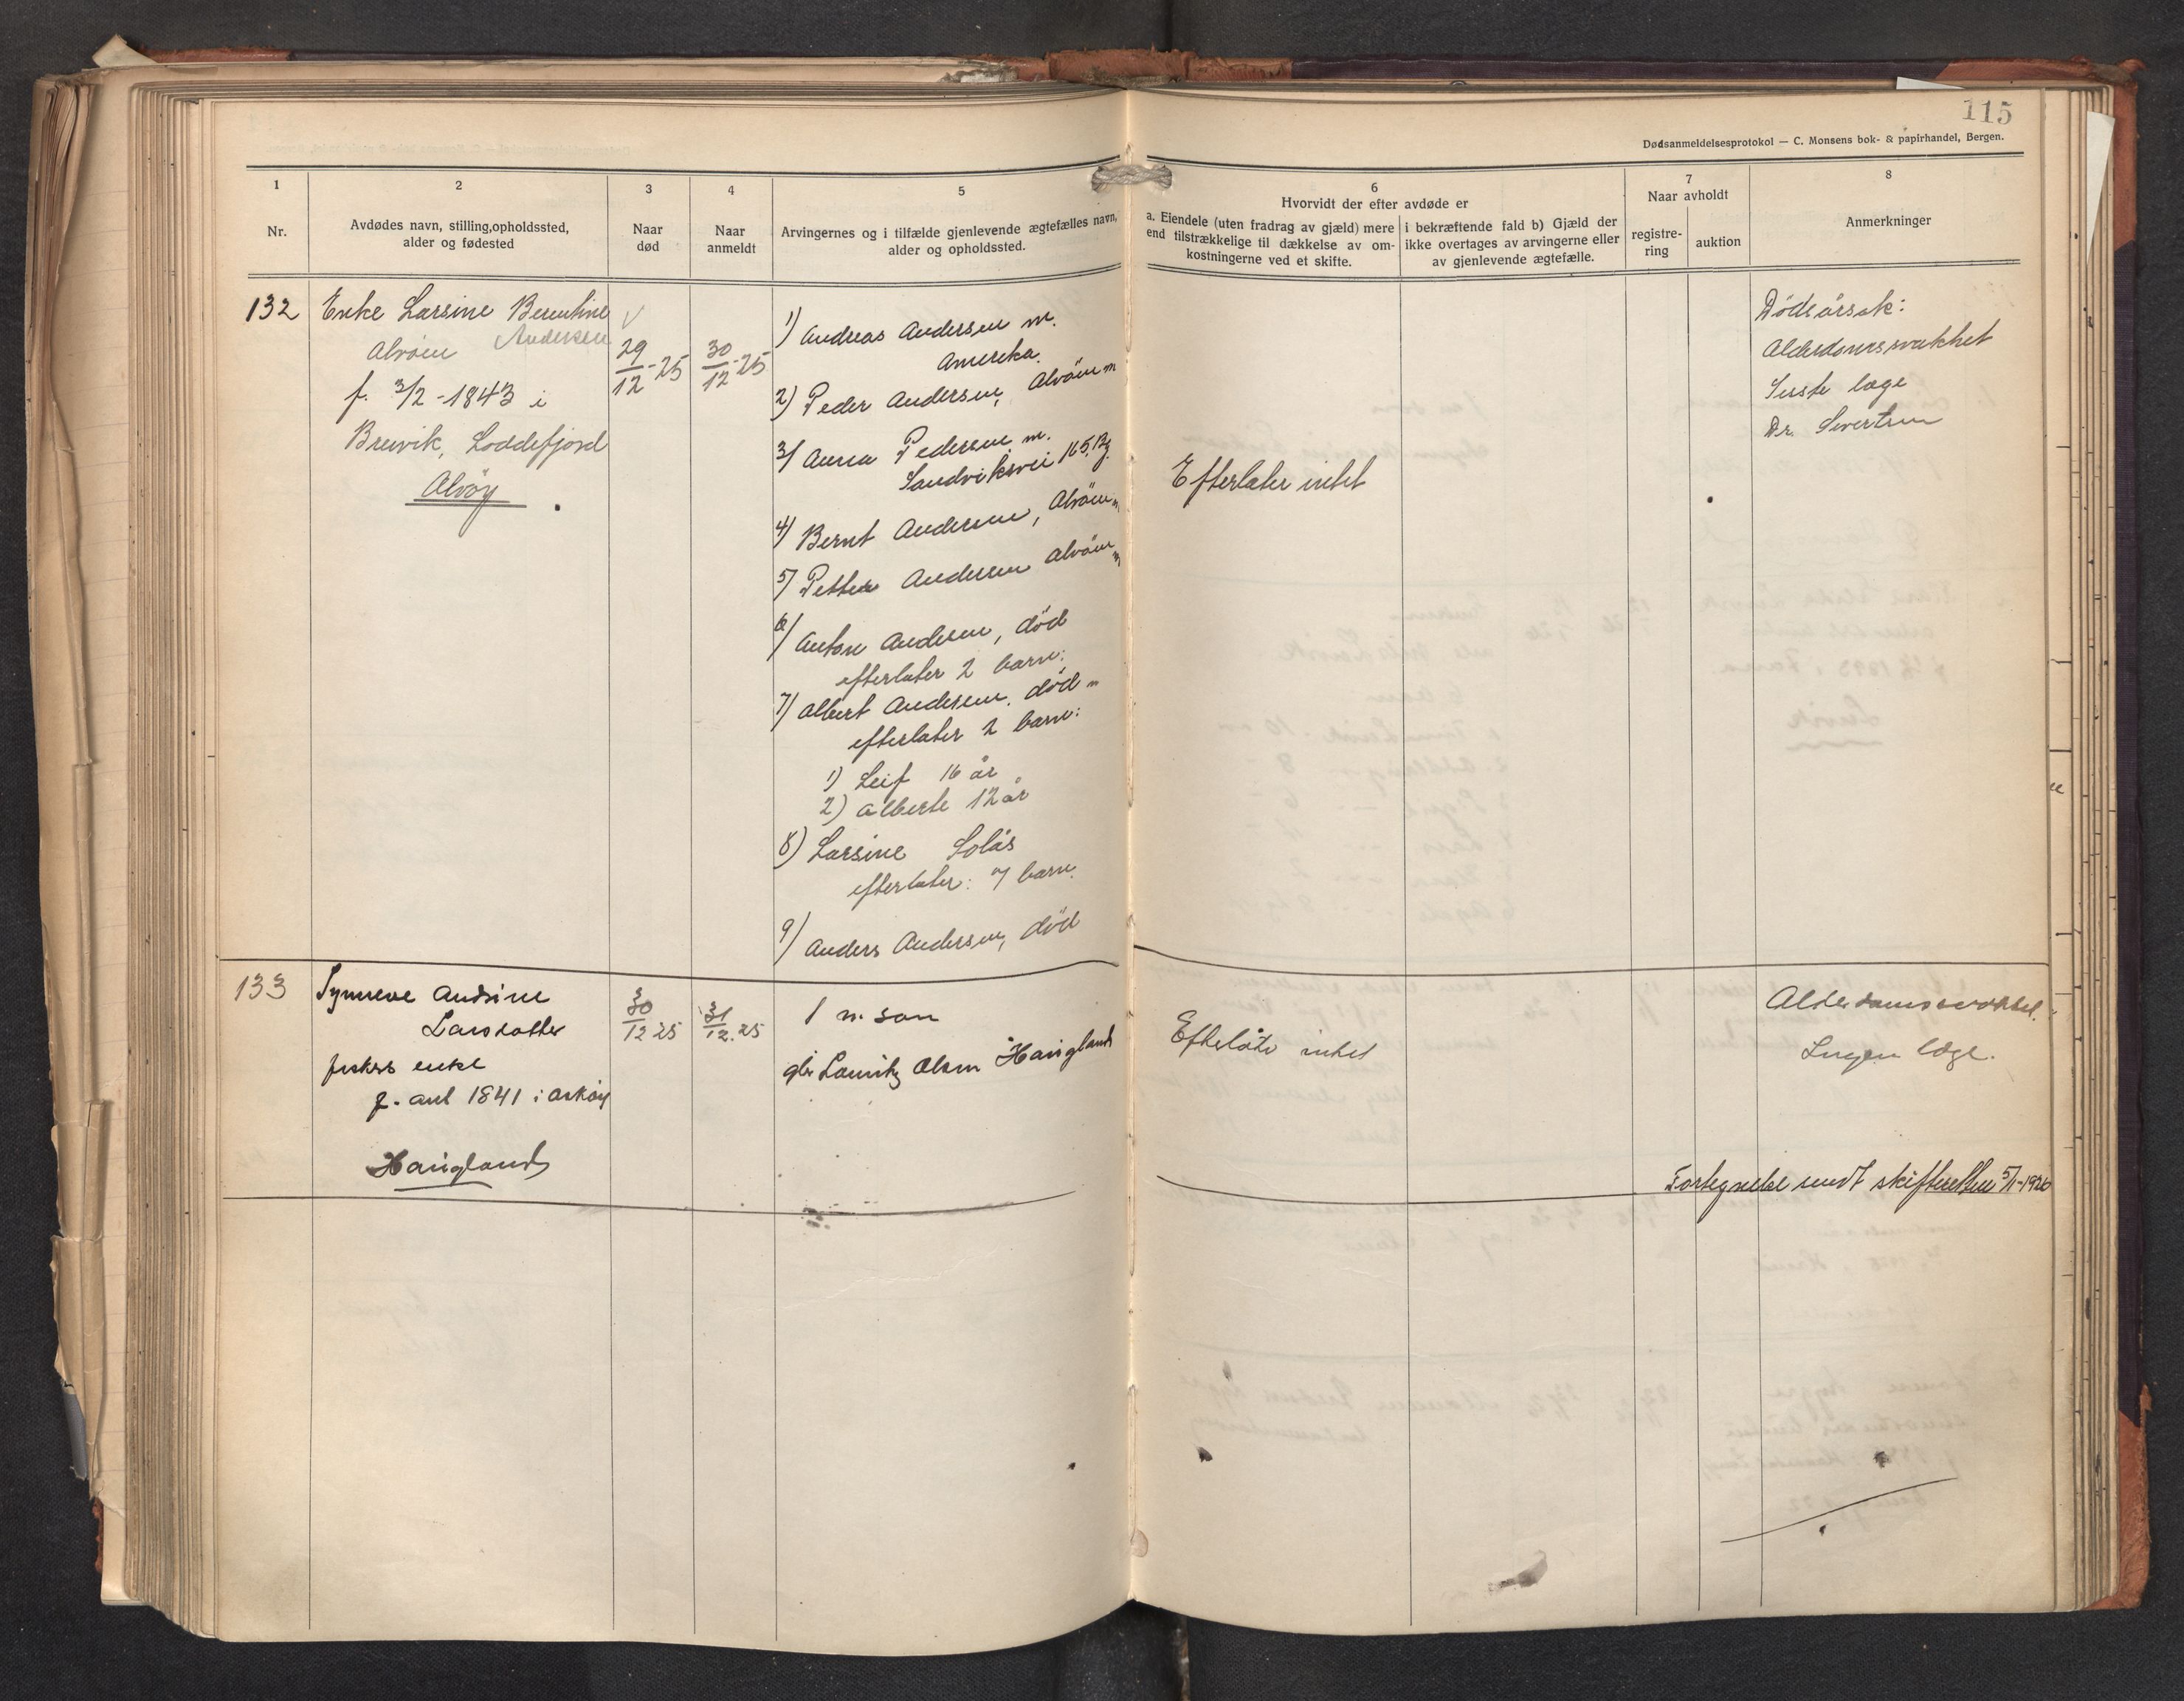 115
Dødsanmeldelsesprotokol — C. Monsens bok- & papirhandel, Bergen.
1
Nr.
2
Avdødes navn, stilling, opholdssted,
alder og fødested
3
Naar
død
4
Naar
anmeldt
5
Arvingernes og i tilfælde gjenlevende ægtefælles navn,
alder og opholdssted.
6
Hvorvidt der efter avdøde er
a. Eiendele (uten fradrag av gjæld) mere
end tilstrækkelige til dækkelse av om-
kostningerne ved et skifte.
i bekræftende fald b) Gjæld der
ikke overtages av arvingerne eller
av gjenlevende ægtefælle.
7
Naar avholdt
registre-
ring
auktion
8
Anmerkninger
132
Enke Larsine Berentine
Andersen
Alvøen
f. 3/2 - 1843 i
Breivik, Loddefjord
Alvøy
29/12-25
30/12-25
1) Andreas Andersen m.
Amerika.
2) Peder Andersen, Alvöen m
3) Anna Pedersen m.
Sandviksvei 165, Bg.
4) Bernt Andersen, Alvöen m
5) Petter Andersen Alvöen m
6) Anton Andersen, död
efterlater 2 barn:
7) Albert Andersen, död m
efterlater 2 barn:
1) Leif 16 år
2) Alberte 12 år
8) Larsine Solås
efterlater: 7 barn.
9) Anders Andersen, död
Efterlater intet
Dödsårsak:
Alderdomssvakhet
Siste læge
Dr. Sivertsen
133
Synneve Andrine
Larsdatter
fiskers enke
f. ant 1841 i Askøy
Hauglands
30/12 25
31/12.25
1 m. søn
Lauritz Olsen Hauglands
Efterlate intet
Ingen læge.
Fortegnelse sendt skifteretten 5/1-1926